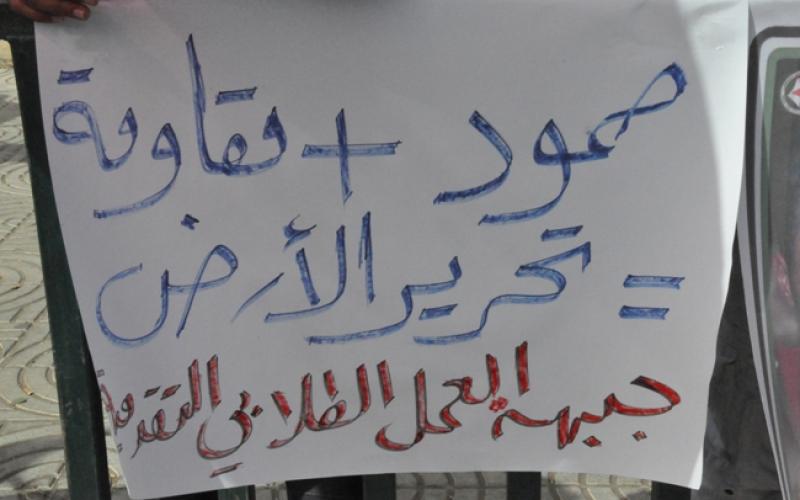 صمود + مقاومة
= تحرير الأرض
جبهة العمل الطلابي التقدمية